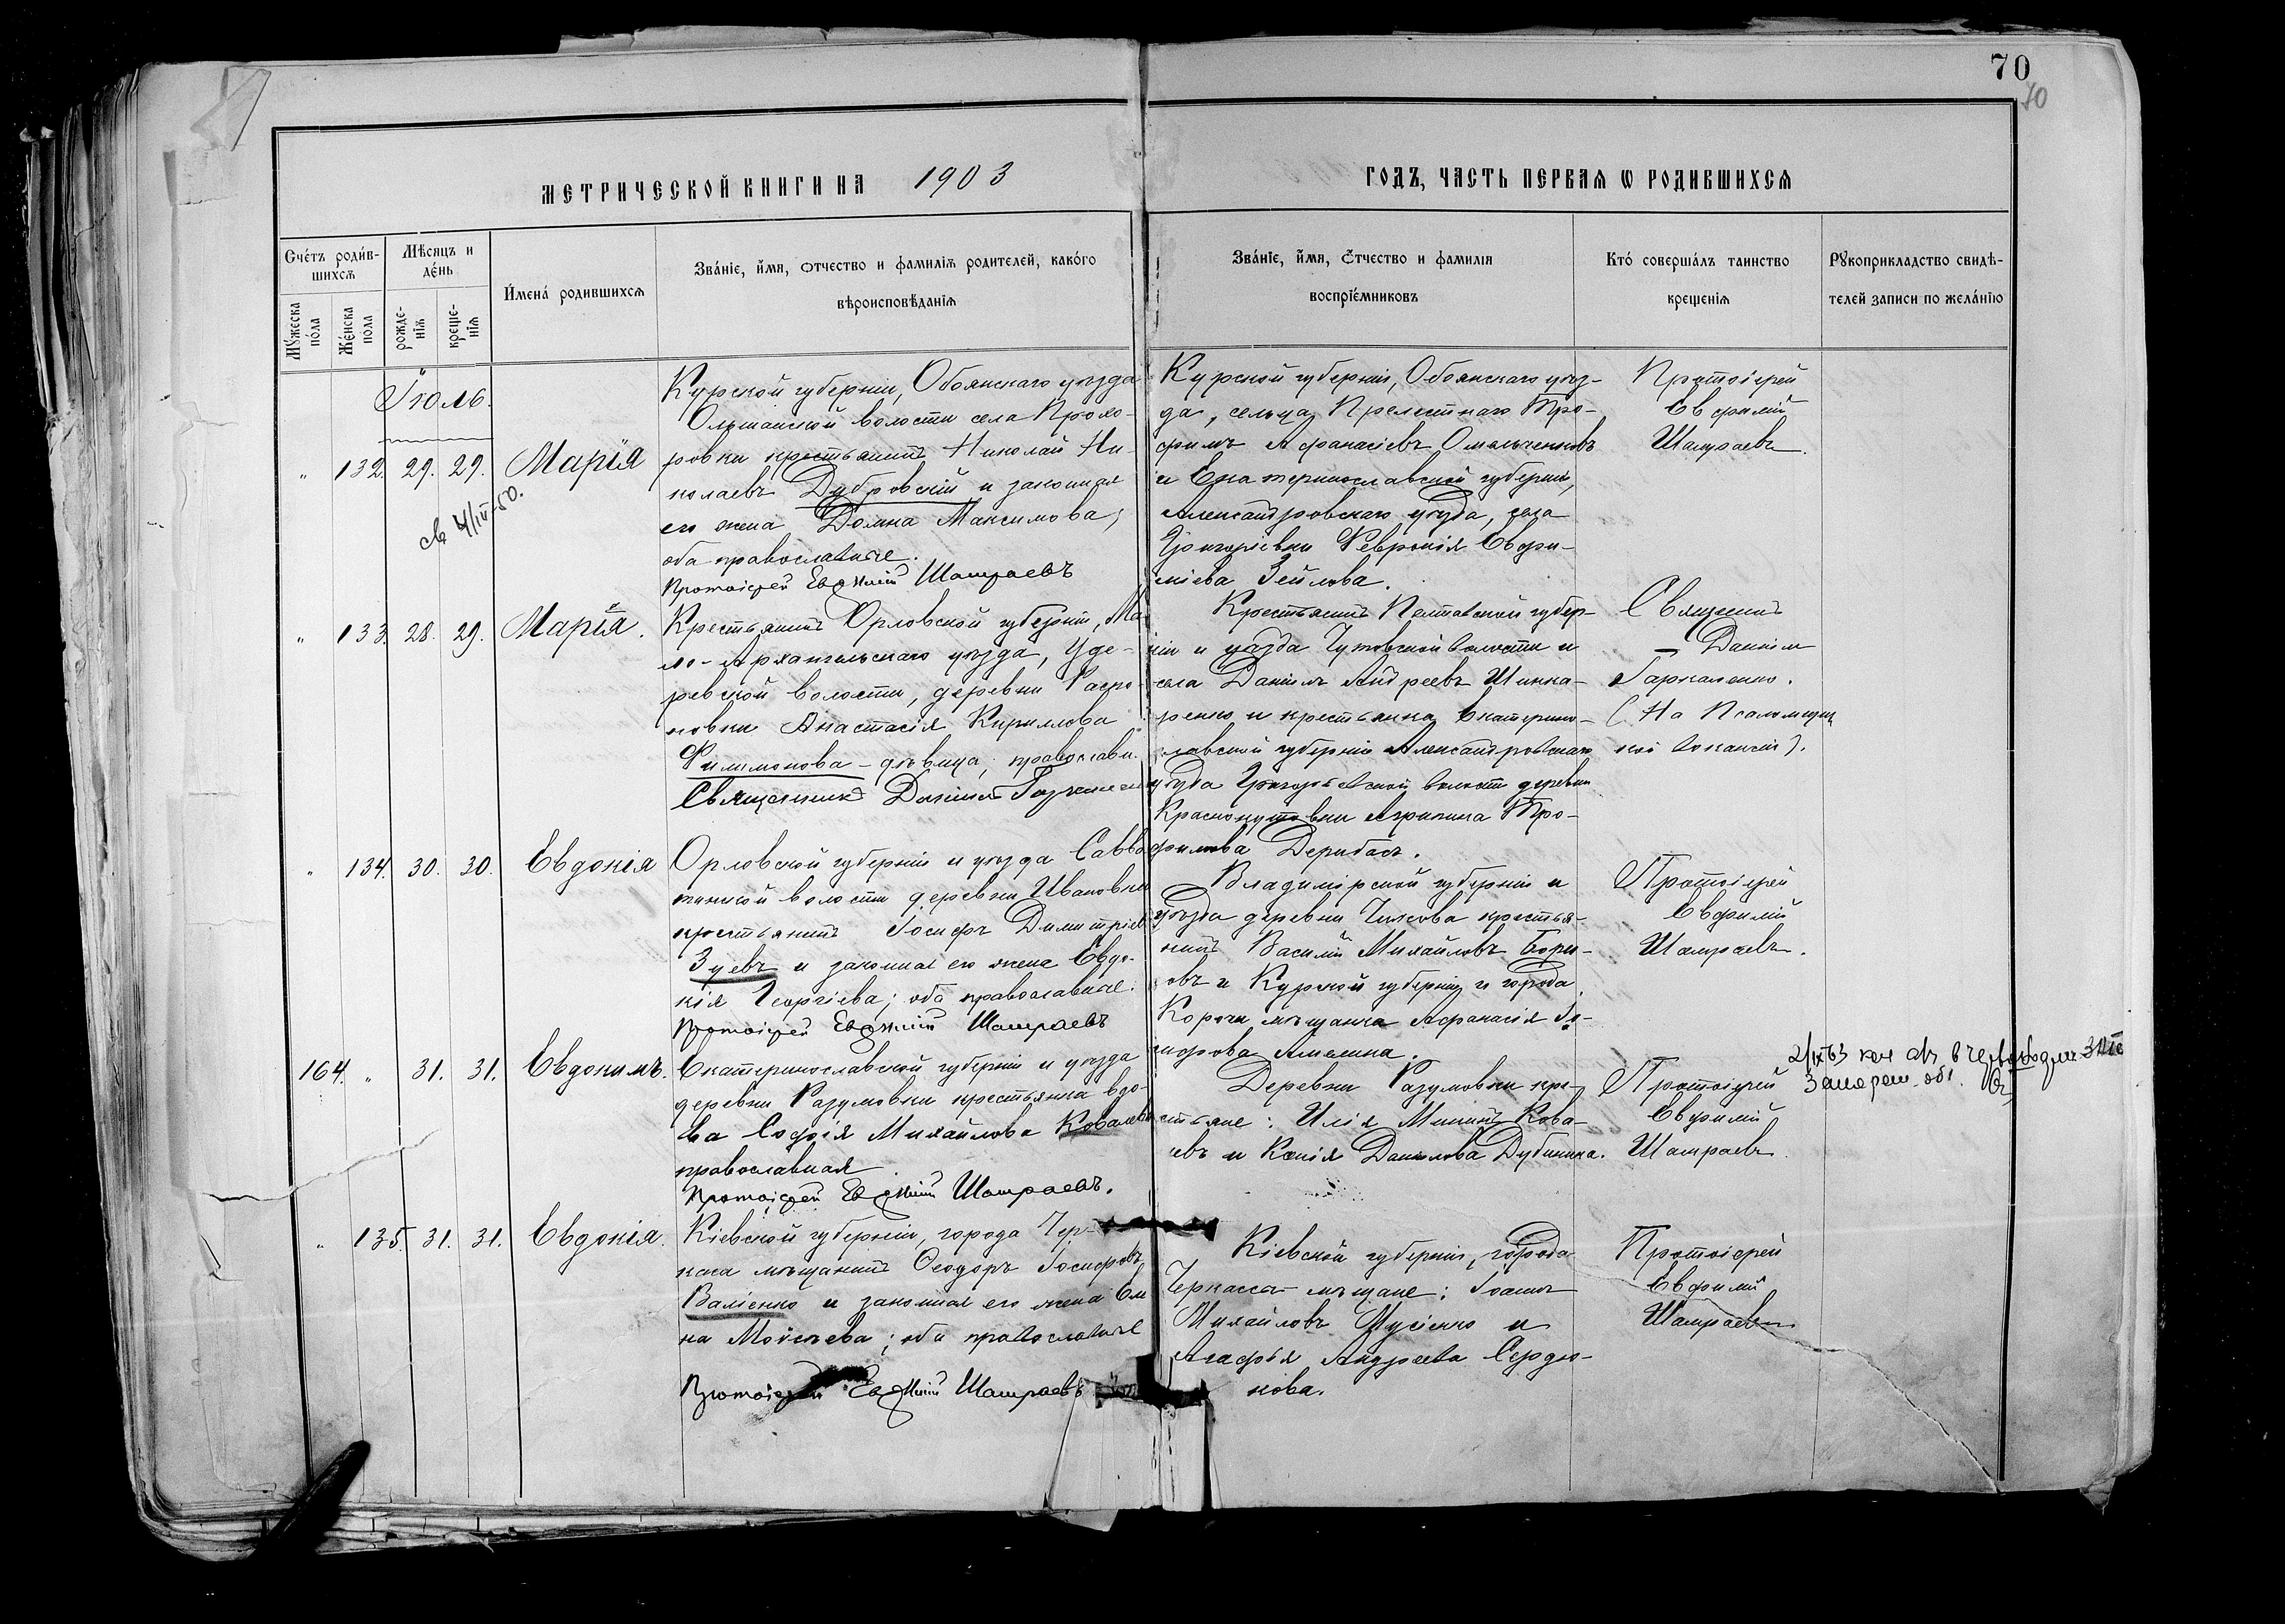 70
70
МЕТРИЧЕСКОЙ КНИГИ НА 1903
ГОДЪ, ЧАСТЬ ПЕРВАЯ Ѡ РОДИВШИХСЯ
Счетъ родив-
шихся
Мужеска
пола
Женска
пола
Мѣсяцъ и
день
рожде-
нія
креще-
нія
Имена родившихся
Званіе, имя, отчество и фамилія родителей, какого
вѣроисповѣданія
Званіе, имя, отчество и фамилія
воспріемниковъ
Кто совершалъ таинство
крещенія
Рукоприкладство свидѣ-
телей записи по желанію
Іюль.
" 132. 29. 29. Марія
св 4/III-50.
Курской губерніи, Обоянскаго уѣзда
Ольшанской волости села Прохо-
ровки крестьянинъ Николай Ни-
колаевъ Дубровскій и законная
его жена Домна Максимова;
оба православные.
Протоіерей Евфимій Шамраевъ
Курской губерніи, Обоянскаго уѣз-
да, сельца Прелестнаго Тро-
фимъ Афанасіевъ Омельченковъ
и Екатеринославской губерніи,
Александровскаго уѣзда, села
Григорьевки Февронія Евфи-
міева Зейлова.
Протоіерей
Евфимій
Шамраевъ.
" 133. 28. 29. Марія.
Крестьянинъ Орловской губерніи, Ма-
ло-Архангельскаго уѣзда,
ревской волости, деревни
новки Анастасія Кириллова
Филимонова - дѣвица, православн.
Священникъ Даніилъ
Крестьянинъ Полтавской губер-
ніи и уѣзда Чутовской волости и
села Даніилъ Андреевъ Шинка-
ренко и крестьянка Екатерино-
славской губерніи Александровскаго
уѣзда Григорьевской волости деревни
Краснокутовки Агрипина Тро-
фимова Дерибасъ.
Священникъ
Даніилъ
Гаркаленко.
(На Псаломщиц
кой вакансіи).
" 134. 30. 30. Евдокія
Орловской губерніи и уѣзда Савво
тинской волости деревни Ивановки
крестьянинъ Іосифъ Димитріев
Зуевъ и законная его жена Евдо-
кія Георгіева; оба православные.
Протоіерей Евфимій Шамраевъ
Владимірской губерніи и
уѣзда деревни крестья-
нинъ Василій Михайловъ Бори-
овъ и Курской губерніи и города
Корочи мѣщанка Афанасія Іс-
идорова Амелина.
Протоіерей
Евфимій
Шамраевъ.
164. " 31. 31. Евдокимъ.
Екатеринославской губерніи и уѣзда
деревни Разумовки крестьянка вдо-
ва Софія Михайлова Ковалева
православная.
Протоіерей Евфимій Шамраевъ.
Деревни Разумовки кре-
стьяне: Илія Мининъ Кова-
левъ и Ксенія Данилова Дубинина.
Протоіерей
Евфимій
Шамраевъ.
" 135. 31. 31. Евдокія.
Кіевской губерніи, города Чер-
каса мѣщанинъ Ѳеодоръ Іосифовъ
Валіенко и законная его жена Ѳек
ла Моисеева; оба православные
Протоіерей Евфимій Шамраевъ
Кіевской губерніи, города
Черкасса мѣщане: Іоаннъ
Михайловъ Мусіенко и
Агафья Андреева Сердю-
кова.
Протоіерей
Евфимій
Шамраевъ